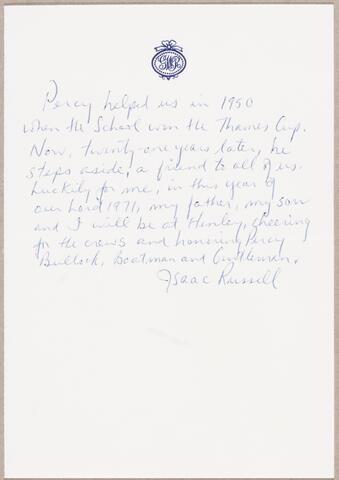 Percy helped us in 1950
when the School won the Thames Cup.
Now, twenty-one years later, he
steps aside, a friend to all of us.
Luckily for me, in this year of
our Lord 1971, my father, my son
and I will be at Henley, cheering
for the crews and honoring Percy
Bullock, Boatman and Gentleman.
Isaac Russell